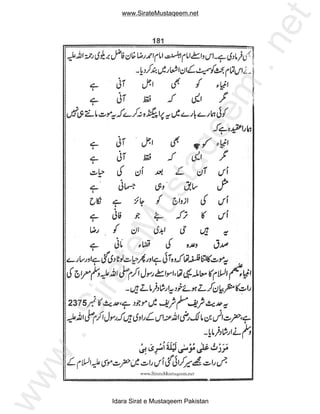 www.SirateMustaqeem.net
181
بھی فرما دی ہے۔ اس واسطے امام اہلسنت امام احمد رضا خان فاضل بریلوی رحمۃ اللہ علیہ
نے اس تمام بحث کو سمیٹ کے ان اشعار میں بند کر دیا۔
انبیاء کو بھی اجل آنی ہے
مگر ایسی کہ فقط آنی ہے
کوئی ہمارے بارے میں یہ پراپیگنڈہ نہ کرے کہ یہ موت مانتے ہی نہیں
ہمارا عقیدہ ہے کہ
انبیاء کو بھی اجل آنی ہے
مگر ایسی کہ فقط آنی ہے
اُس آن کے بعد اُن کی حیات
مثل سابق وہی جسمانی ہے
اُس کی ازواج کو جائز ہے نکاح
اُس کا ترکہ بٹے جو فانی ہے
یہ ہیں حی ابدی ان کو رضا
صدق وعدہ کی قضاء مانی ہے
یہ موت کا اتنا فلسفہ تھا کہ وہ آنی ہے اور پھر حیات لوٹا دی گئی ہے اور سارے
انبیاء علیہم السلام کا معاملہ یہی تھا، اسی واسطے رسول اکرم صلی اللہ علیہ وسلم معراج کی
رات کا منظر بیان کرتے ہوئے خود یہ ارشاد فرماتے ہیں۔
یہ حدیث شریف مسلم شریف میں موجود ہے، حدیث کا نمبر 2375
ہے، حضرت انس بن مالک رضی اللہ عنہ اس کے راوی ہیں کہ رسول اکرم صلی اللہ علیہ
وسلم نے ارشاد فرمایا۔
مَرَرْتُ عَلٰی مُوْسٰی لَیْلَةَ اُسْرِیَ بِیْ
جس رات مجھے سیر کرائی گئی اُس رات میں حضرت موسیٰ علیہ السلام کے
www.SirateMustaqeem.net
Idara Sirat e Mustaqeem Pakistan
www.SirateMustaqeem.net